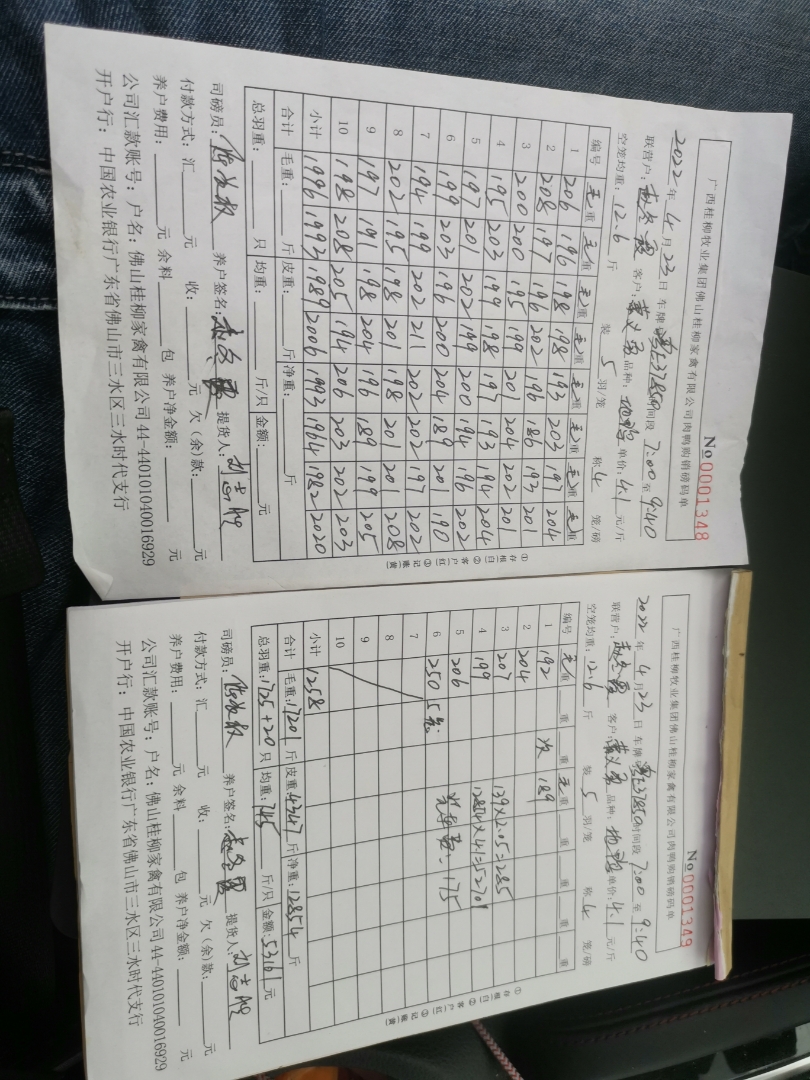 广西桂柳牧业集团佛山桂柳家禽有限公司肉鸭购销磅码单
No 0001348
2022年4月23日 车牌 时间段 7:00 至 9:40
联营户: 客户: 品种: 单价: 4.1 元/斤
空笼均重: 12.6 斤 装 5 羽/笼 称 4 笼/磅
编号 毛重 毛重 毛重 毛重 毛重 毛重 毛重 毛重
1 206 196 198 198 193 203 197 204
2 208 197 196 202 196 186 193 201
3 200 200 195 199 201 204 202 201
4 195 203 199 198 197 193 194 204
5 197 201 202 199 200 194 196 202
6 199 203 196 200 204 189 201 190
7 194 199 202 211 202 202 197 202
8 202 195 198 201 198 201 201 208
9 197 191 198 204 196 189 199 205
10 198 208 205 194 206 203 202 203
小计 1996 1993 1989 2006 1993 1964 1982 2020
合计 毛重: 斤 皮重: 斤 净重: 斤
总羽重: 只 均重: 斤/只 金额: 元
①存根(白) ②客户(红) ③记账(黄)
司磅员: 养户签名: 提货人:
付款方式: 汇 元 收: 元 欠(余)款: 元
养户费用: 元 余料 包 养户净金额: 元
公司汇款账号: 户名: 佛山桂柳家禽有限公司 44-440101040016929
开户行: 中国农业银行广东省佛山市三水区三水时代支行
广西桂柳牧业集团佛山桂柳家禽有限公司肉鸭购销磅码单
No 0001349
2022年4月23日 车牌 时间段 7:00 至 9:40
联营户: 客户: 品种: 单价: 4.1 元/斤
空笼均重: 12.6 斤 装 5 羽/笼 称 4 笼/磅
编号 毛重 重 重 毛重 重 重 重 重
1 192 次 189
2 204
3 207 139×2.05=285
4 199 12854×4.1=52701
5 206 175
6 250 5笼
7
8
9
10
小计 1258
合计 毛重: 17201 斤 皮重: 4347 斤 净重: 12854 斤
总羽重: 1725+20 只 均重: 7.45 斤/只 金额: 53161 元
①存根(白) ②客户(红) ③记账(黄)
司磅员: 养户签名: 提货人:
付款方式: 汇 元 收: 元 欠(余)款: 元
养户费用: 元 余料 包 养户净金额: 元
公司汇款账号: 户名: 佛山桂柳家禽有限公司 44-440101040016929
开户行: 中国农业银行广东省佛山市三水区三水时代支行